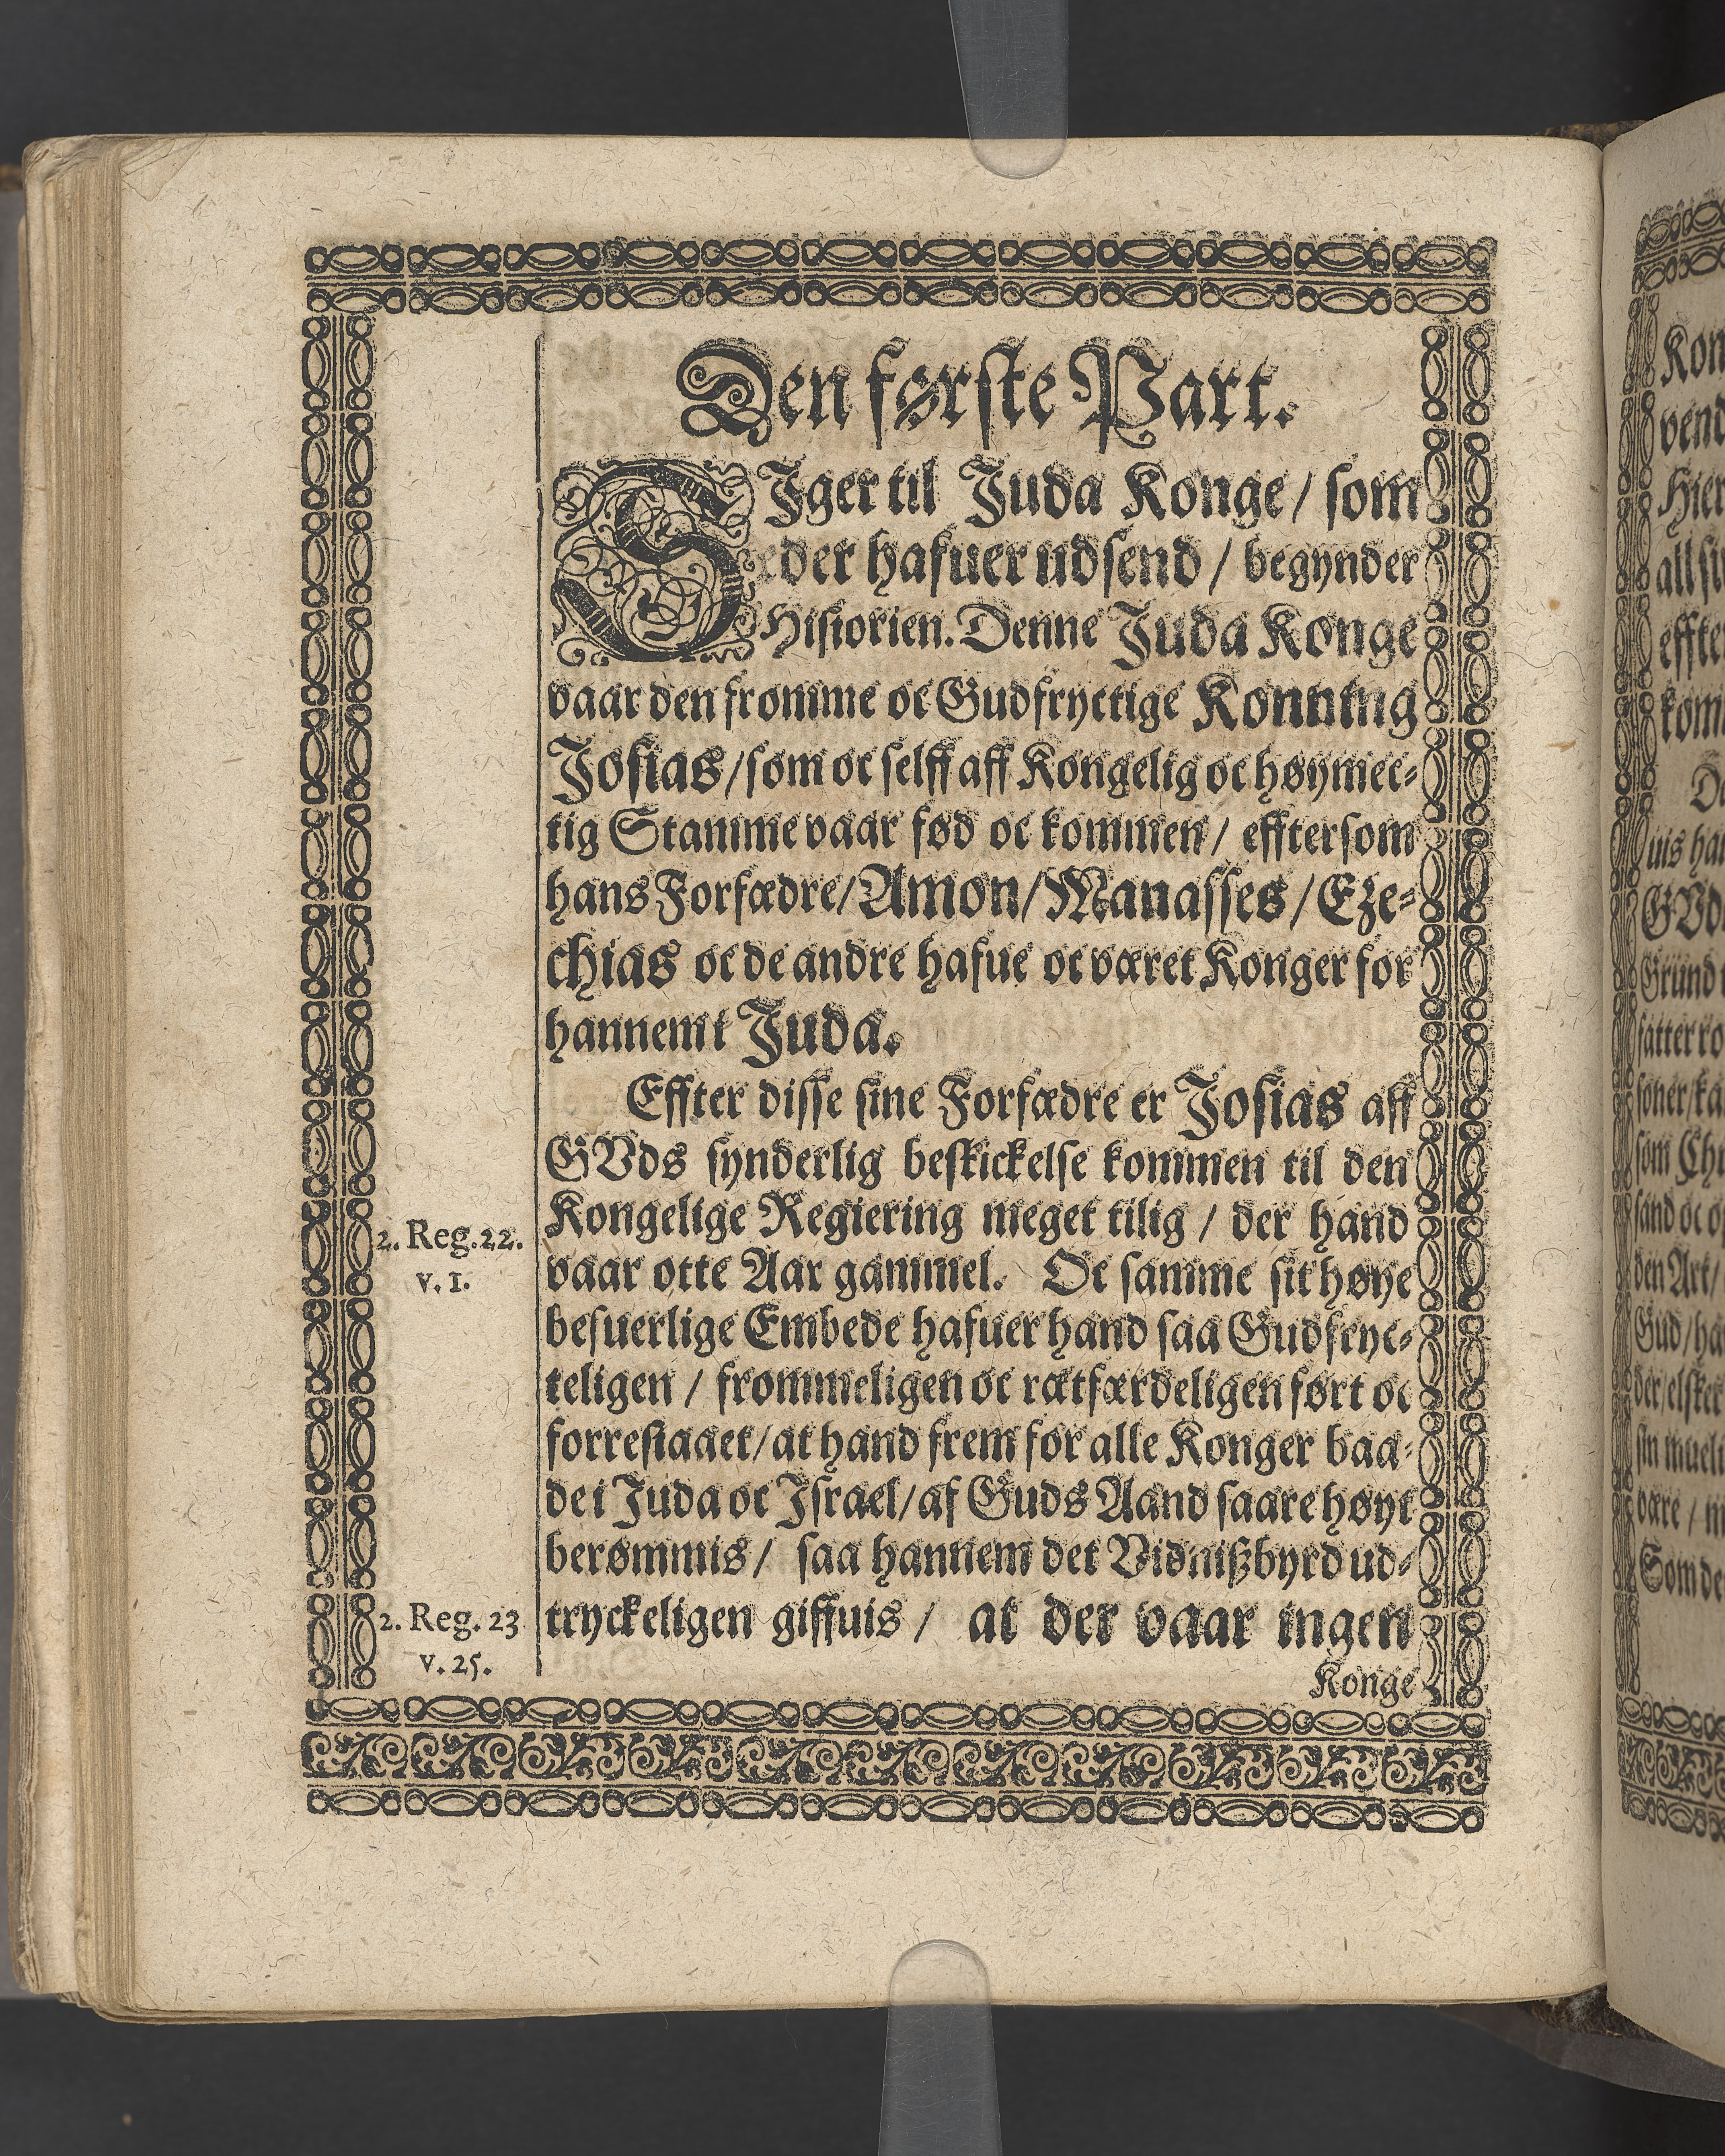 Den første Part.
SJger til Juda Konge / som
eder hafuer udsend / begynder
Historien. Denne Juda Konge
vaar den fromme oc Gudfryctige Konning
Josias / som oc selff aff Kongelig oc høymec-
tig Stamme vaar fød oc kommen / efftersom
hans Forfædre / Amon / Manasses / Eze-
chias oc de andre hafue oc været Konger for
hannem i Juda.
Effter disse sine Forfædre er Josias aff
GVds synderlig beskickelse kommen til den
Kongelige Regiering meget tilig / der hand
2. Reg. 22.
v. 1.
vaar otte Aar gammel. Oc samme sit høye
besuerlige Embede hafuer hand saa Gudfryc-
teligen / frommeligen oc rætfærdeligen ført oc
forrestaaet / at hand frem for alle Konger baa-
de i Juda oc Israel / af Guds Aand saare høyt
berømmis / saa hannem det Vidnißbyrd ud-
tryckeligen giffuis / at der vaar ingen
2. Reg. 23
v. 25.
Konge